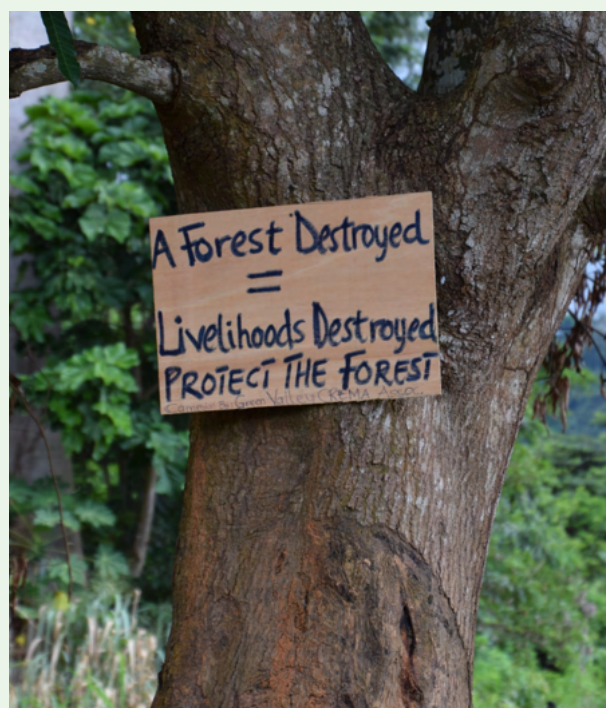 A Forest Destroyed
=
Livelihoods Destroyed
PROTECT THE FOREST
Green Valley CREMA Assoc.